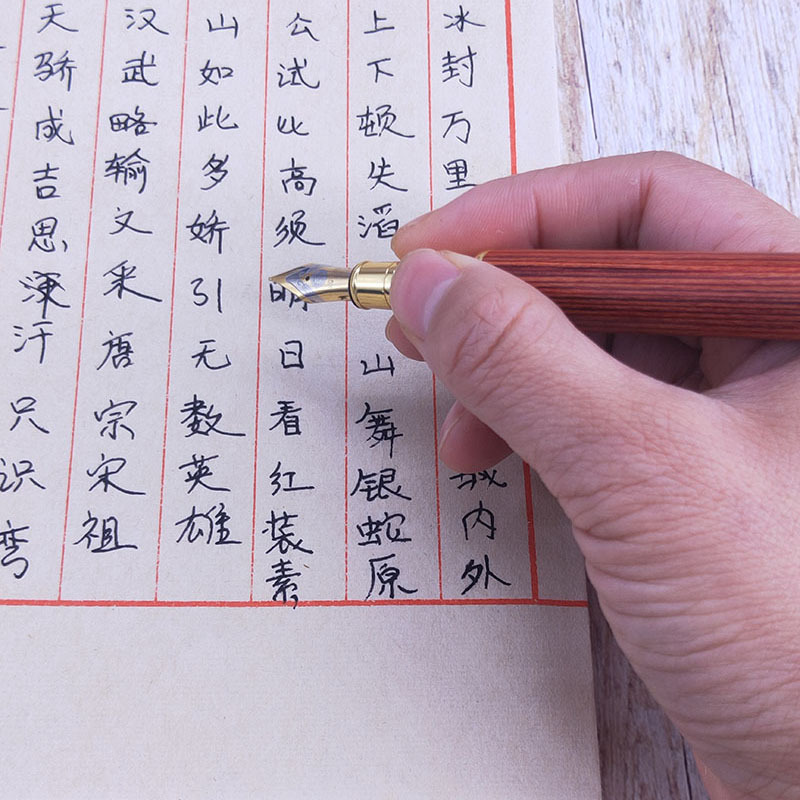 冰封万里城内外
上下顿失滔山舞银蛇原
公试比高须明日看红装素
山如此多娇引无数英雄
汉武略输文采唐宗宋祖
天骄成吉思汗只识弯